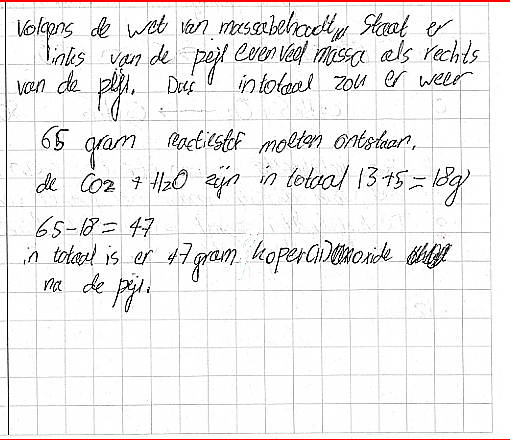 Volgens de wet van massabehoudt, staat er
links van de pijl evenveel massa als rechts
van de pijl. Dus in totaal zou er weer
65 gram reactiestof moeten ontstaan.
de CO2 + H2O zijn in totaal 13+5=18g
65-18= 47
in totaal is er 47 gram koper(II)oxide
na de pijl.